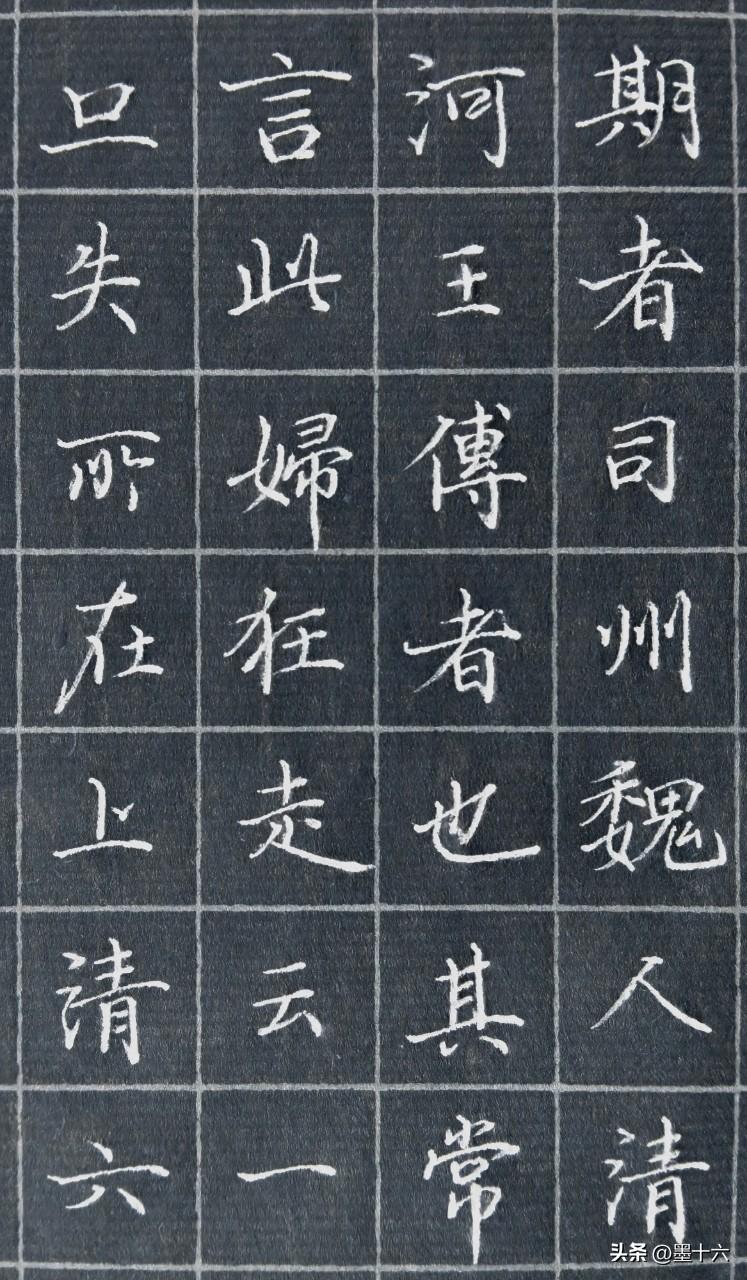 期者司州魏人清
河王傅者也其常
言此婦狂走云一
旦失所在上清六
头条 @墨十六